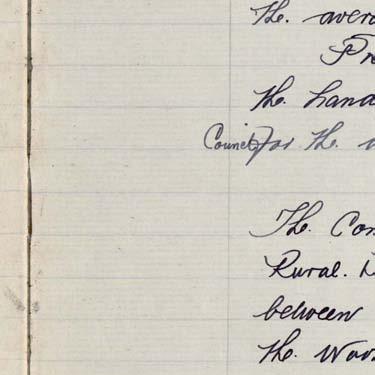 the. avera
Pr
the. hand
Council for the.
The. Con
Rural. D
between
the. Wor